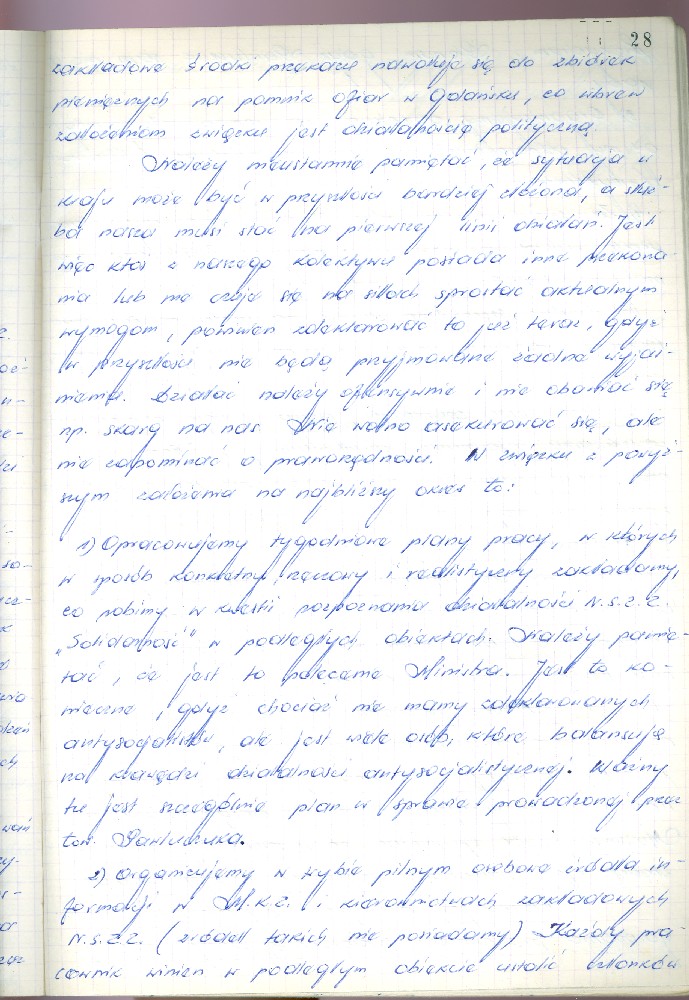 28
zakładowe środki przekazu nawołuje się do zbiórek
pieniężnych na pomnik ofiar w Gdańsku, co wbrew
założeniom związku jest działalnością polityczną.
Należy nieustannie pamiętać, że sytuacja w
kraju może być w przyszłości bardziej złożona, a służ-
ba nasza musi stać na pierwszej linii działań. Jeśli
więc ktoś z naszego kolektywu posiada inne przekona-
nia lub nie czuje się na siłach sprostać aktualnym
wymogom, powinien zdeklarować to już teraz, gdyż
w przyszłości nie będą przyjmowane żadne wyjaś-
nienia. Działać należy ofensywnie i nie obawiać się
np. skarg na nas. Nie wolno asekurować się, ale
nie zapominać o praworządności. W związku z powyż-
szym założenia na najbliższy okres to:
1) Opracowujemy tygodniowe plany pracy, w których
w sposób konkretny, rzeczowy i realistyczny zakładamy,
co robimy w kwestii rozpoznania działalności N.S.Z.Z.
„Solidarność" w podległych obiektach. Należy pamię-
tać, że jest to polecenie Ministra. Jest to ko-
nieczne, gdyż chociaż nie mamy zdeklarowanych
antysocjalistów, ale jest wiele osób, które balansują
na krawędzi działalności antysocjalistycznej. Ważny
tu jest szczególnie plan w sprawie prowadzonej przez
tow. Pawluczuka.
2) Organizujemy w trybie pilnym osobowe źródła in-
formacji w M.K.Z. i kierownictwach zakładowych
N.S.Z.Z. (źródeł takich nie posiadamy) Każdy pra-
cownik winien w podległym obiekcie ustalić członków